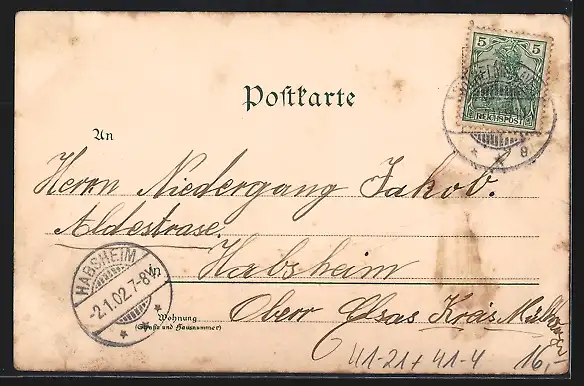 5 5
REICHSPOST
8
Postkarte
An
Herrn Niedergang Jakob.
Aldestrase.
in Habsheim
HABSHEIM
-2.1.02.7-8V.
Wohnung
(Straße und Hausnummer)
Oberr Elsas Krais Mülhausen
41-21+41-4 16,-